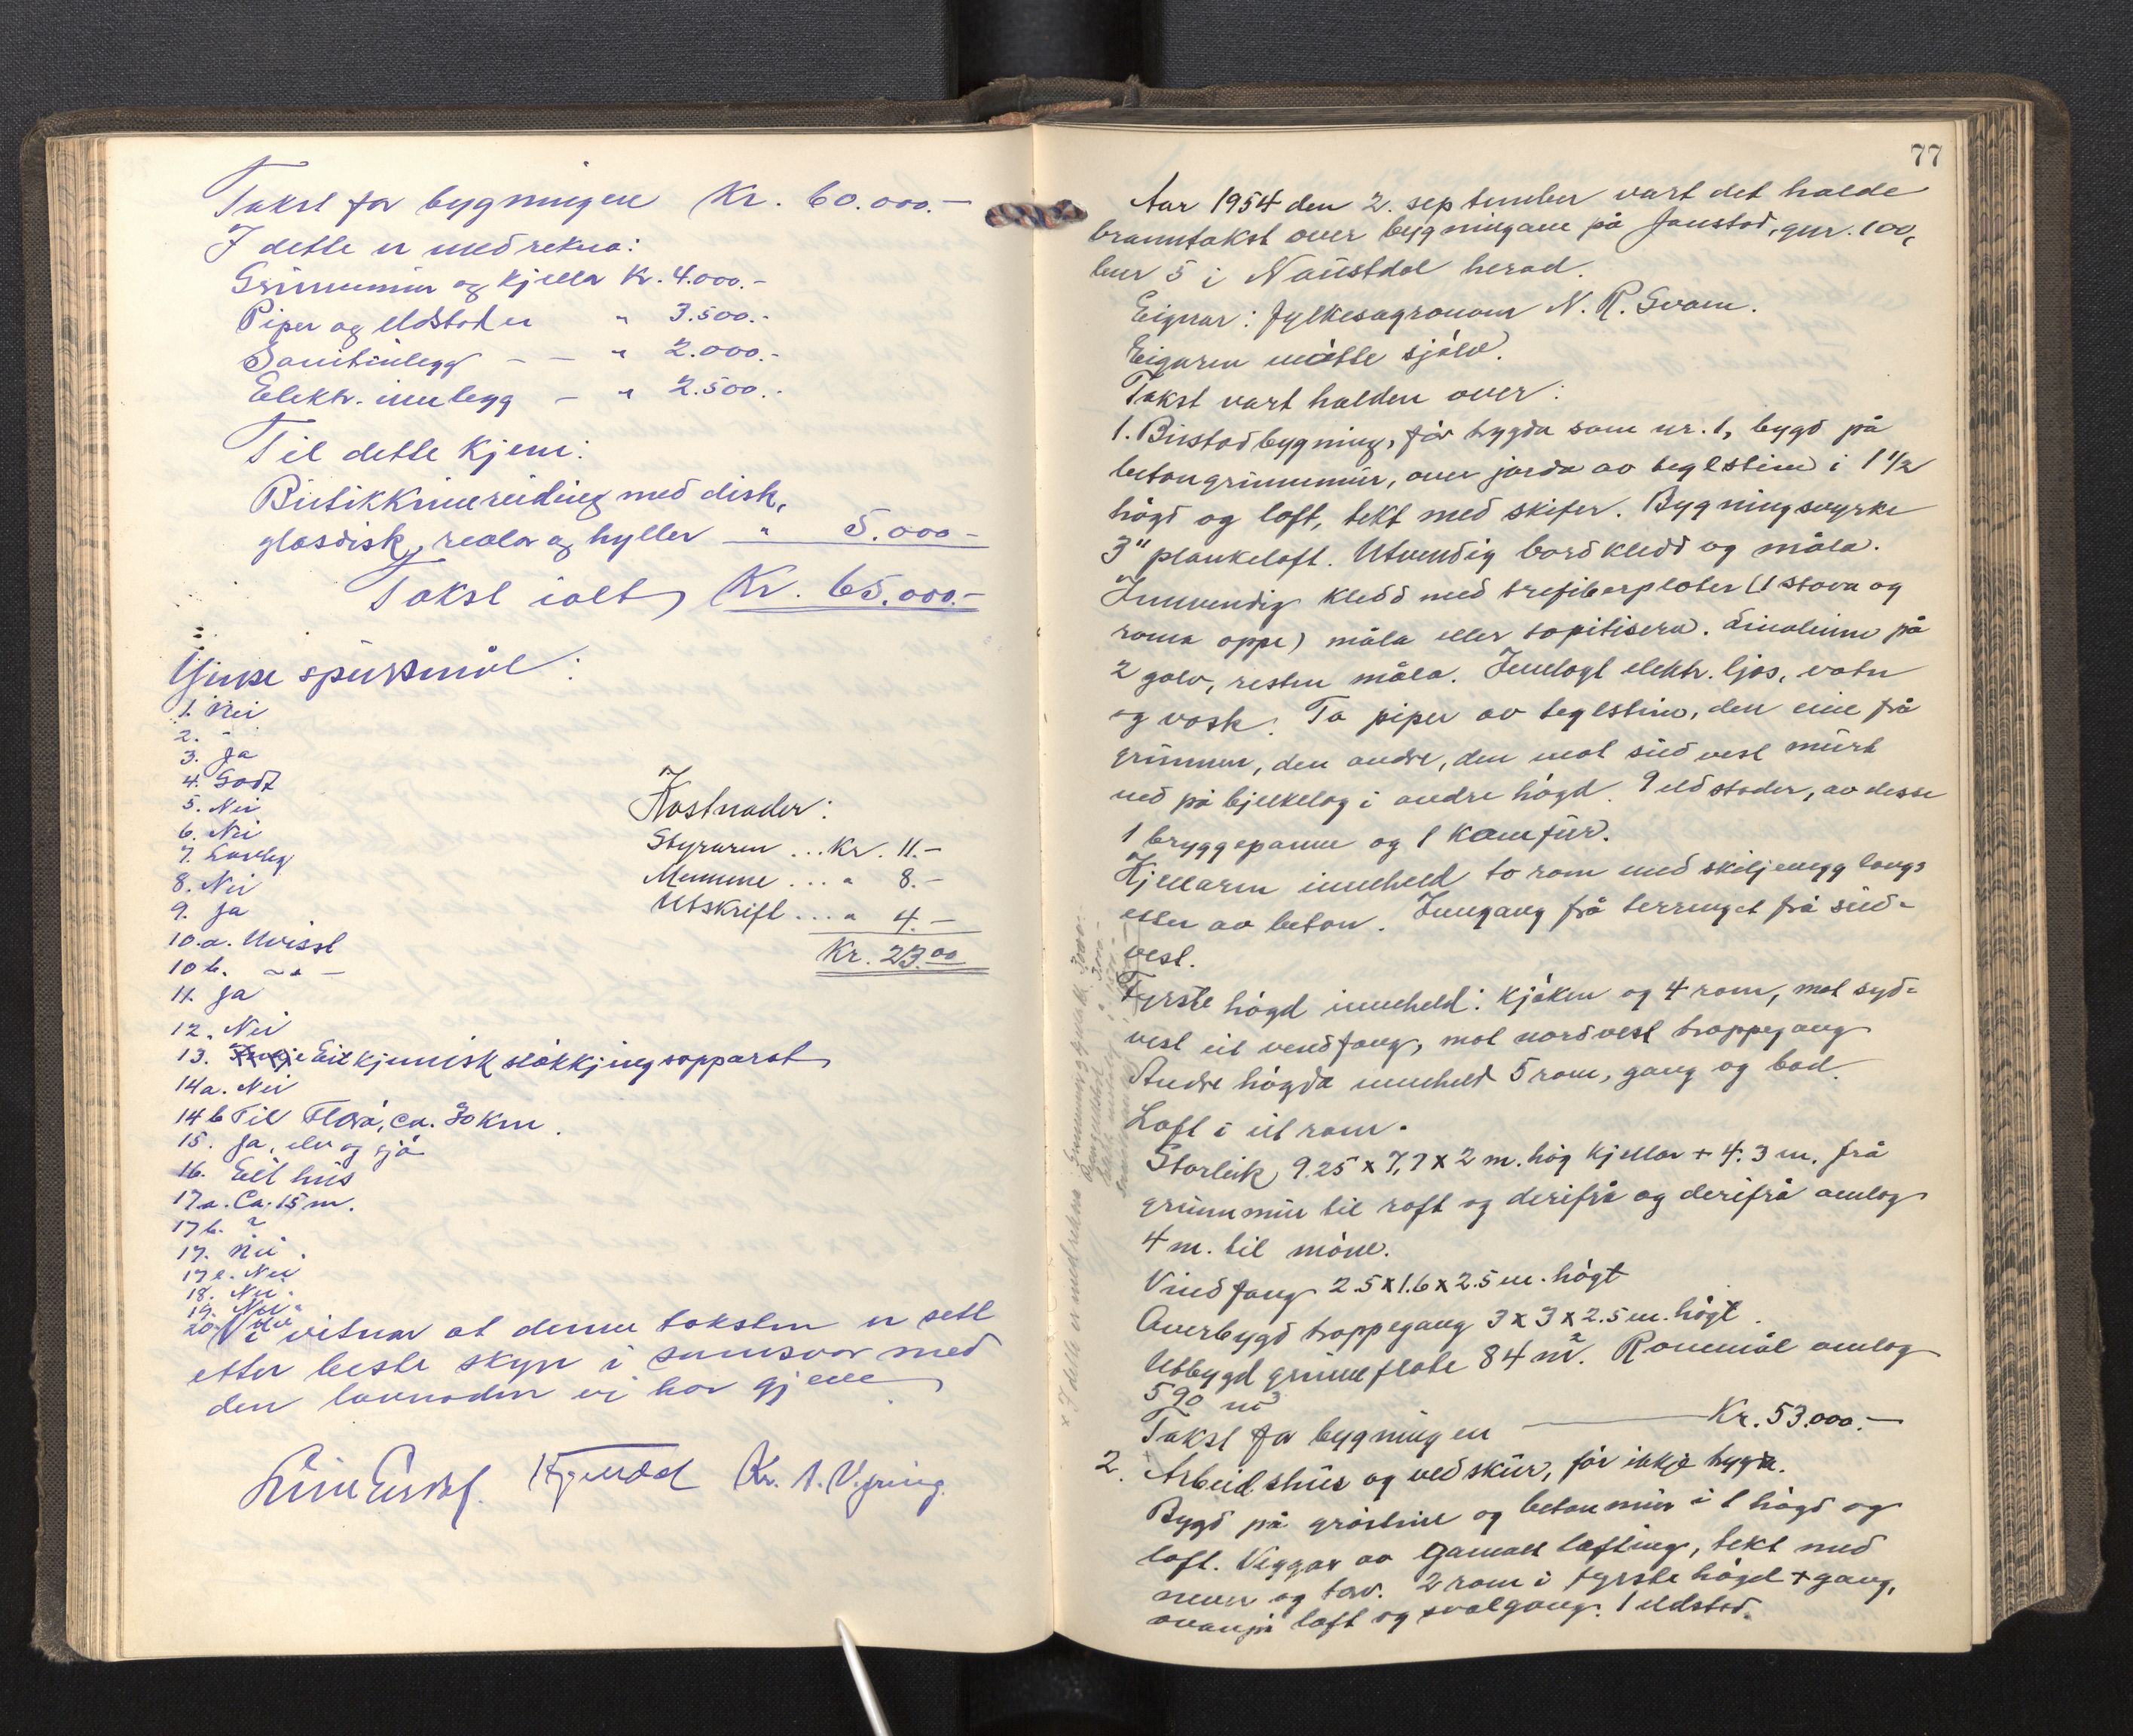 Takst for bygningen Kr. 60.000.-
I dette er medrekna:
Grunnmur og kjellar Kr. 4.000.-
Piper og eldstader " 3.500.-
Sanitinlegg - - " 2.000.-
Elektr. innlegg - " 2.500.-
Til dette kjem:
Butikkinnreiding med disk,
glasdisk, reolar og hyller " 5.000-
Takst ialt Kr. 65.000.-
Ymse spursmål:
1. Nei
2. -
3. Ja
4. Godt
5. Nei
6. Nei
7. Lovleg
8. Nei
9. Ja
10.a. Uvisst
10 b. -"-
11. Ja
12. Nei
13. Eit kjemisk sløkkjingsapparat
14a. Nei
14 b Til Florø, ca. 30 km.
15. Ja, elv og sjø
16. Eit hus
17a. Ca. 15 m.
17b. "
17. Nei.
17 e. Nei
18. Nei.
19. Nei.
20. Nei
Kostnader:
Styraren ... Kr. 11.-
Mennene ... " 8.-
Utskrift ... " 4.-
Kr. 23.00
Vi vitnar at denne taksten er sett
etter beste skyn i samsvar med
den lovnaden vi har gjeve.
Kr. A. Vefring.
77
Aar 1954 den 2. september vart det halde
branntakst over bygningane på Jonstad, gnr. 100,
bnr 5 i Naustdal herad.
Eignar: fylkesagronom N. R. Svoen.
Eigaren møtte sjølv.
Takst vart halden over:
1. Bustadbygning, før trygda som nr. 1, bygd på
betongrunnmur, over jorda av teglstein i 1 1/2
høgd og loft, tekt med skifer. Bygningsvyrke
3" plankeloft. Utvendig bordkledd og måla.
Innvendig kledd med trefiberplater (1 stova og
roma oppe) måla eller tapitisera. Linoleum på
2 golv, resten måla. Innlagt elektr. ljos, vatn
og vask. To piper av teglstein, den eine frå
grunnen, den andre, den mot sudvest murt
ned på bjelkelag i andre høgd. 9 eldstader, av desse
1 bryggepanne og 1 kamfur.
Kjellaren inneheld to rom med skiljevegg langs
etter av beton. Inngang frå terrenget frå sud-
vest.
Fyrste høgd inneheld: kjøken og 4 rom, mot syd-
vest eit vindfang, mot nordvest trappegang
Andre høgda inneheld 5 rom, gang og bad.
Loft i eit rom.
Storleik 9.25 x 7,7 x 2 m. høg kjellar + 4.3 m. frå
grunnmur til raft og derifrå og derifrå omlag
4 m. til møne.
Vindfang 2.5 x 1.6 x 2.5 m. høgt
Overbygd trappegang 3 x 3 x 2.5 m. høgt.
Utbygd grunnflate 84 m². Rommål omlag
590 m³
Takst for bygningen Kr. 53.000.-
2. Arbeidshus og vedskur, før ikkje trygda.
Bygd på gråstein og betonmur i 1 høgd og
loft. Veggar av gamal lafting, tekt med
never og torv. 2 rom i fyrste høgd + gang,
ovanpå loft og svalgang. 1 eldstad.
x I dette er medrekna Grunnmur og kjellar